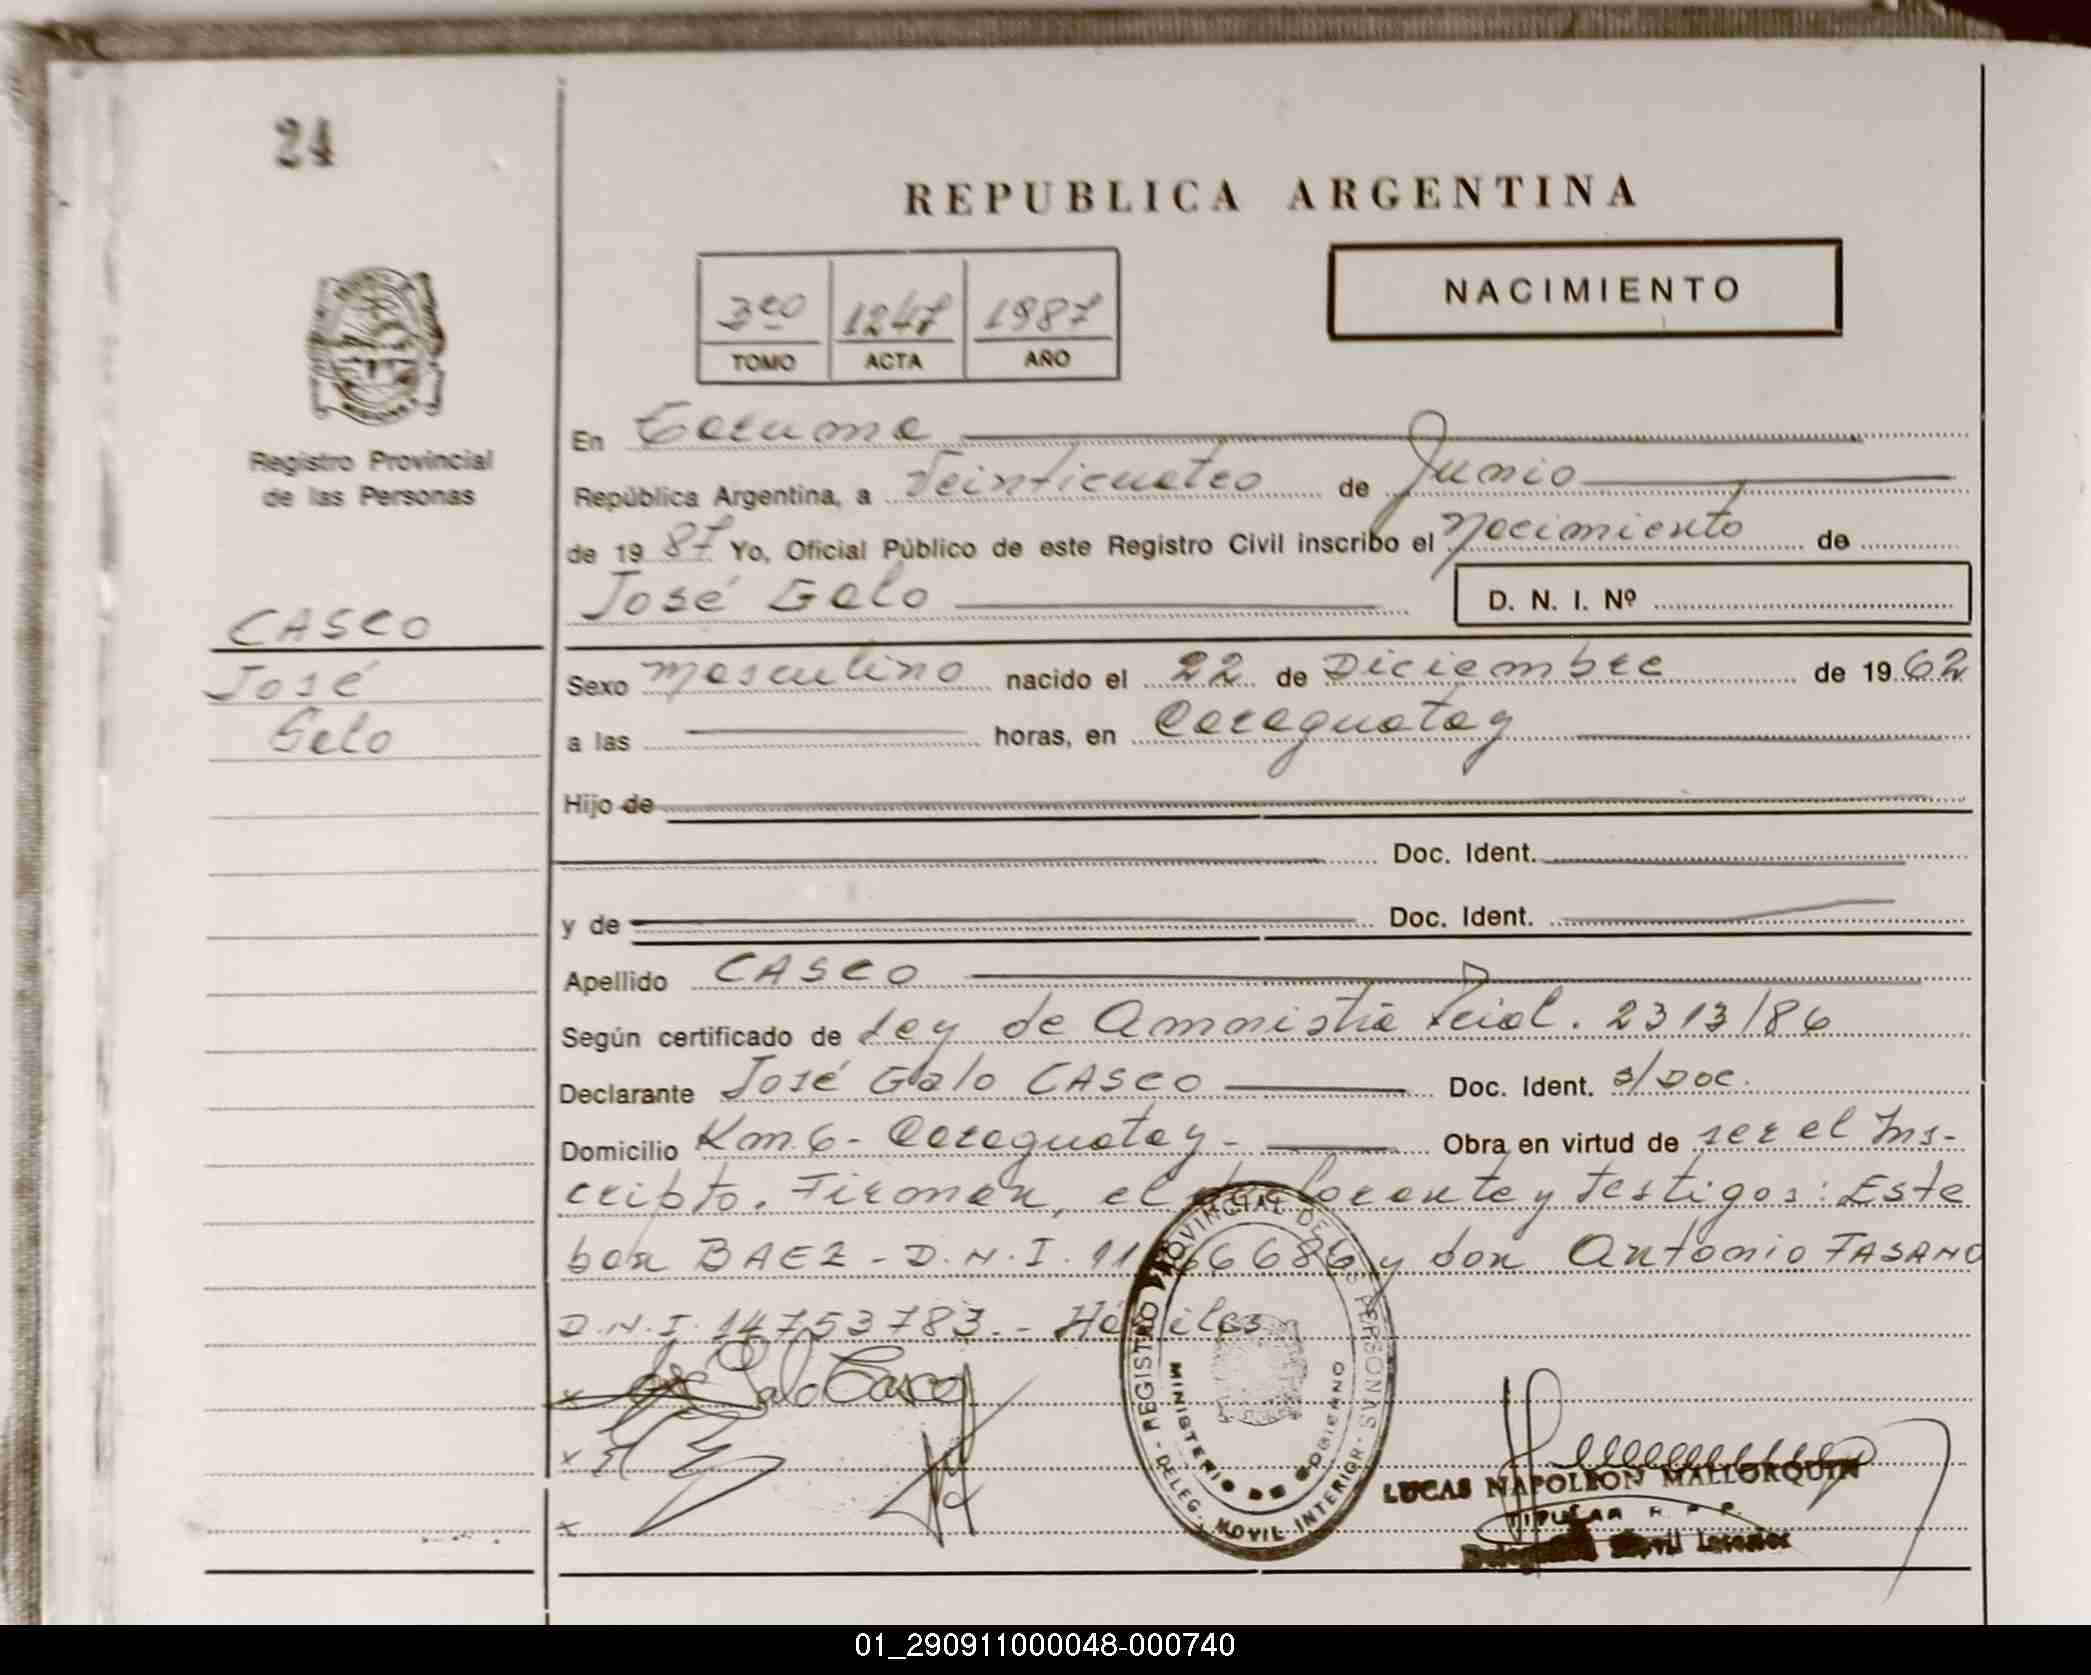 24
REPUBLICA ARGENTINA
NACIMIENTO
3ro 1247 1987
TOMO ACTA AÑO
Registro Provincial
de las Personas
CASCO
José
Galo
En Caruma
República Argentina, a Veinticuatro de Junio
de 1987 Yo, Oficial Público de este Registro Civil inscribo el Nacimiento de
José Galo D. N. I. Nº
Sexo Masculino nacido el 22 de Diciembre de 1962
a las horas, en Caraguatay
Hijo de
Doc. Ident.
y de Doc. Ident.
Apellido CASCO
Según certificado de Ley de Amnistia Pcial. 2313/86
Declarante José Galo CASCO Doc. Ident. s/Doc.
Domicilio Km. 6 - Caraguatay - Obra en virtud de ser el Ins-
cripto. Firman, el declarante y testigos: Este
ban BAEZ - D.N.I. 11 66686 y don Antonio FASANO
D.N.I. 14753783. - Hábiles
x José Galo Casco
x
x
REGISTRO PROVINCIAL DE LAS PERSONAS
MINISTERIO DE GOBIERNO
DELEG. MOVIL INTERIOR
LUCAS NAPOLEON MALLORQUIN
TITULAR R. P. P.
Móvil Interior
01_290911000048-000740